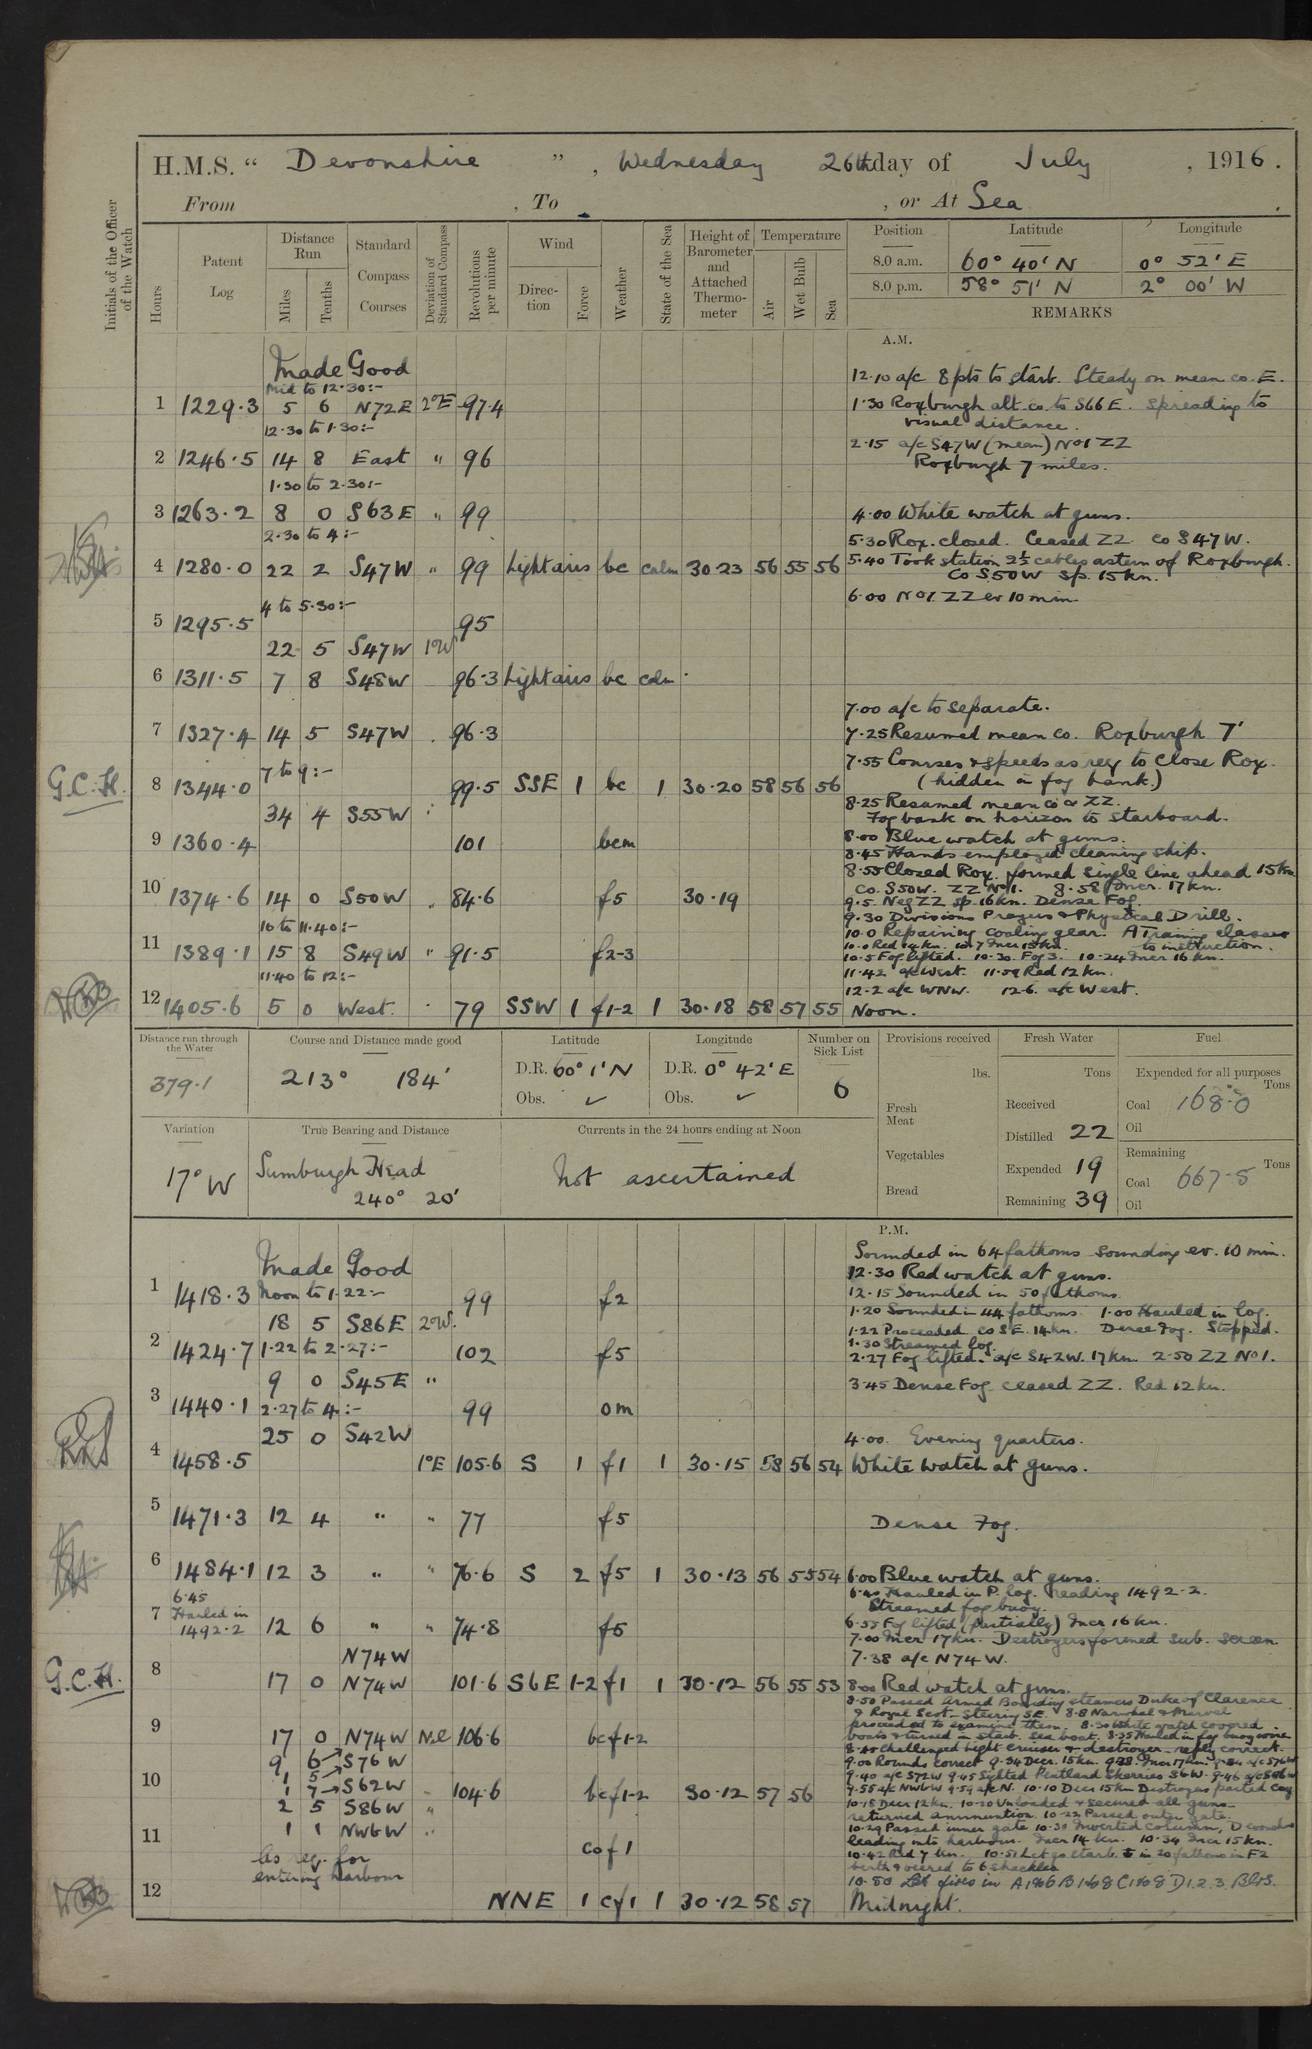 H.M.S. “ Devonshire ”, Wednesday 26th day of July, 1916.
From , To , or At Sea
Initials of the Officer of the Watch
Hours
Patent Log
Distance Run
Miles
Tenths
Standard Compass Courses
Deviation of Standard Compass
Revolutions per minute
Wind
Direction
Force
Weather
State of the Sea
Height of Barometer and Attached Thermometer
Temperature
Air
Wet Bulb
Sea
Position Latitude Longitude
8.0 a.m. 60° 40' N 0° 52' E
8.0 p.m. 58° 51' N 2° 00' W
REMARKS
A.M.
Made Good
Mid to 12.30:-
1 1229.3 5 6 N72E 2°E 97.4
12.30 to 1.30:-
2 1246.5 14 8 East " 96
1.30 to 2.30:-
3 1263.2 8 0 S63E " 99
2.30 to 4:-
4 1280.0 22 2 S47W " 99 Light airs bc calm 30.23 56 55 56
4 to 5.30:-
5 1295.5 95
22 5 S47W 1°W
6 1311.5 7 8 S48W 96.3 Light airs bc calm
7 1327.4 14 5 S47W . 96.3
7 to 9:-
G.C.H. 8 1344.0 99.5 SSE 1 bc 1 30.20 58 56 56
34 4 S55W
9 1360.4 101 bcm
10 1374.6 14 0 S50W 84.6 f5 30.19
10 to 11.40:-
11 1389.1 15 8 S49W " 91.5 f2-3
11.40 to 12:-
12 1405.6 5 0 West. 79 SSW 1 f1-2 1 30.18 58 57 55
12.10 a/c 8pts to starb. Steady on mean co. E.
1.30 Roxburgh alt. co. to S66E. Spreading to
visual distance.
2.15 a/c S47W (mean) No1 ZZ
Roxburgh 7 miles.
4.00 White watch at guns.
5.30 Rox. closed. Ceased ZZ. co S47W.
5.40 Took station 2½ cables astern of Roxburgh.
Co S50W sp. 15kn.
6.00 No1 ZZ ev 10 min.
7.00 a/c to separate.
7.25 Resumed mean co. Roxburgh 7'
7.55 Courses & speeds as req to close Rox.
(hidden in fog bank.)
8.25 Resumed mean co & ZZ.
Fog bank on horizon to starboard.
8.00 Blue watch at guns.
8.45 Hands employed cleaning ship.
8.55 Closed Rox. formed single line ahead 15kn
Co. S50W. ZZ No1. 8.58 Incr. 17kn.
9.5. Neg ZZ sp. 16kn. Dense Fog.
9.30 Divisions Prayers & Physical Drill.
10.0 Repairing coaling gear. A Training classes
10.0 Red 14kn. 10.7 Incr 15kn. to instruction.
10.5 Fog lifted. 10.30. Fog 3. 10.24 Incr 16kn.
11.42 a/c West. 11.59 Red 12kn.
12.2 a/c WNW. 12.6. a/c West.
Noon.
Distance run through the Water
379.1
Course and Distance made good
213° 184'
Latitude
D.R. 60° 1' N
Obs. ✓
Longitude
D.R. 0° 42' E
Obs. ✓
Number on Sick List
6
Provisions received
lbs.
Fresh Meat
Vegetables
Bread
Fresh Water
Tons
Received
Distilled 22
Expended 19
Remaining 39
Fuel
Expended for all purposes
Tons
Coal 168.0
Oil
Remaining
Tons
Coal 667.5
Oil
Variation
17° W
True Bearing and Distance
Sumburgh Head
240° 20'
Currents in the 24 hours ending at Noon
Not ascertained
P.M.
Made Good
Noon to 1.22:-
1 1418.3 99 f2
18 5 S86E 2°W.
2 1424.7 1.22 to 2.27:- 102 f5
9 0 S45E "
3 1440.1 2.27 to 4:- 99 om
25 0 S42W
4 1458.5 1°E 105.6 S 1 f1 1 30.15 58 56 54
5 1471.3 12 4 " " 77 f5
6 1484.1 12 3 " " 76.6 S 2 f5 1 30.13 56 55 54
6.45
7 Hauled in 1492.2 12 6 " " 74.8 f5
N74W
G.C.H. 8 17 0 N74W 101.6 S6E 1-2 f1 1 30.12 56 55 53
9 17 0 N74W Nil 106.6 bcf1-2
9 6 S76W
1 5
10 1 7 S62W 104.6 bcf1-2 30.12 57 56
2 5 S86W "
1 1 NW6W "
11 cof1
As req. for
entering harbour
12 NNE 1 cf1 1 30.12 58 57
Sounded in 64 fathoms sounding ev. 10 min.
12.30 Red watch at guns.
12.15 Sounded in 50 fathoms.
1.20 Sounded in 44 fathoms. 1.00 Hauled in log.
1.22 Proceeded co SE. 14kn. Dense Fog. Stopped.
1.30 Streamed log.
2.27 Fog lifted. a/c S42W. 17kn. 2.50 ZZ No1.
3.45 Dense Fog ceased ZZ. Red 12kn.
4.00. Evening quarters.
White watch at guns.
Dense Fog.
6.00 Blue watch at guns.
6.40 Hauled in P. log. reading 1492.2.
Streamed fog buoy.
6.55 Fog lifted (partially) Incr 16kn.
7.00 Incr 17kn. Destroyers formed sub. screen
7.38 a/c N74W.
8.00 Red watch at guns.
8.50 Passed Armed Boarding steamers Duke of Clarence
& Royal Scot - Steering SE. 8.8 Narwhal & Marvel
proceeded to examine them. 8.30 White watch covered
boats & turned in starb. sea boat. 8.35 Hauled in fog buoy wire
8.40 Challenged Light Cruiser & destroyer - reply correct.
9.00 Rounds correct 9.34 Decr. 15kn. Incr 17kn. a/c S76W
9.40 a/c S72W 9.45 Sighted Pentland Skerries S6W. 9.46 a/c S86W
9.55 a/c NW6W 9.59 a/c N. 10.10 Decr 15kn Destroyers parted Coy
10.18 Decr 12kn. 10.20 Unloaded & secured all guns
returned ammunition 10.22 Passed outer gate.
10.29 Passed inner gate 10.30 Inverted column,
leading into harbour. Incr 14kn. 10.34 Incr 15kn.
10.42 Red 7kn. 10.51 Let go starb. in 20 fathoms in F2
berth & veered to 6 shackles
10.50 Let fires in D1.2.3. Blrs.
Midnight.